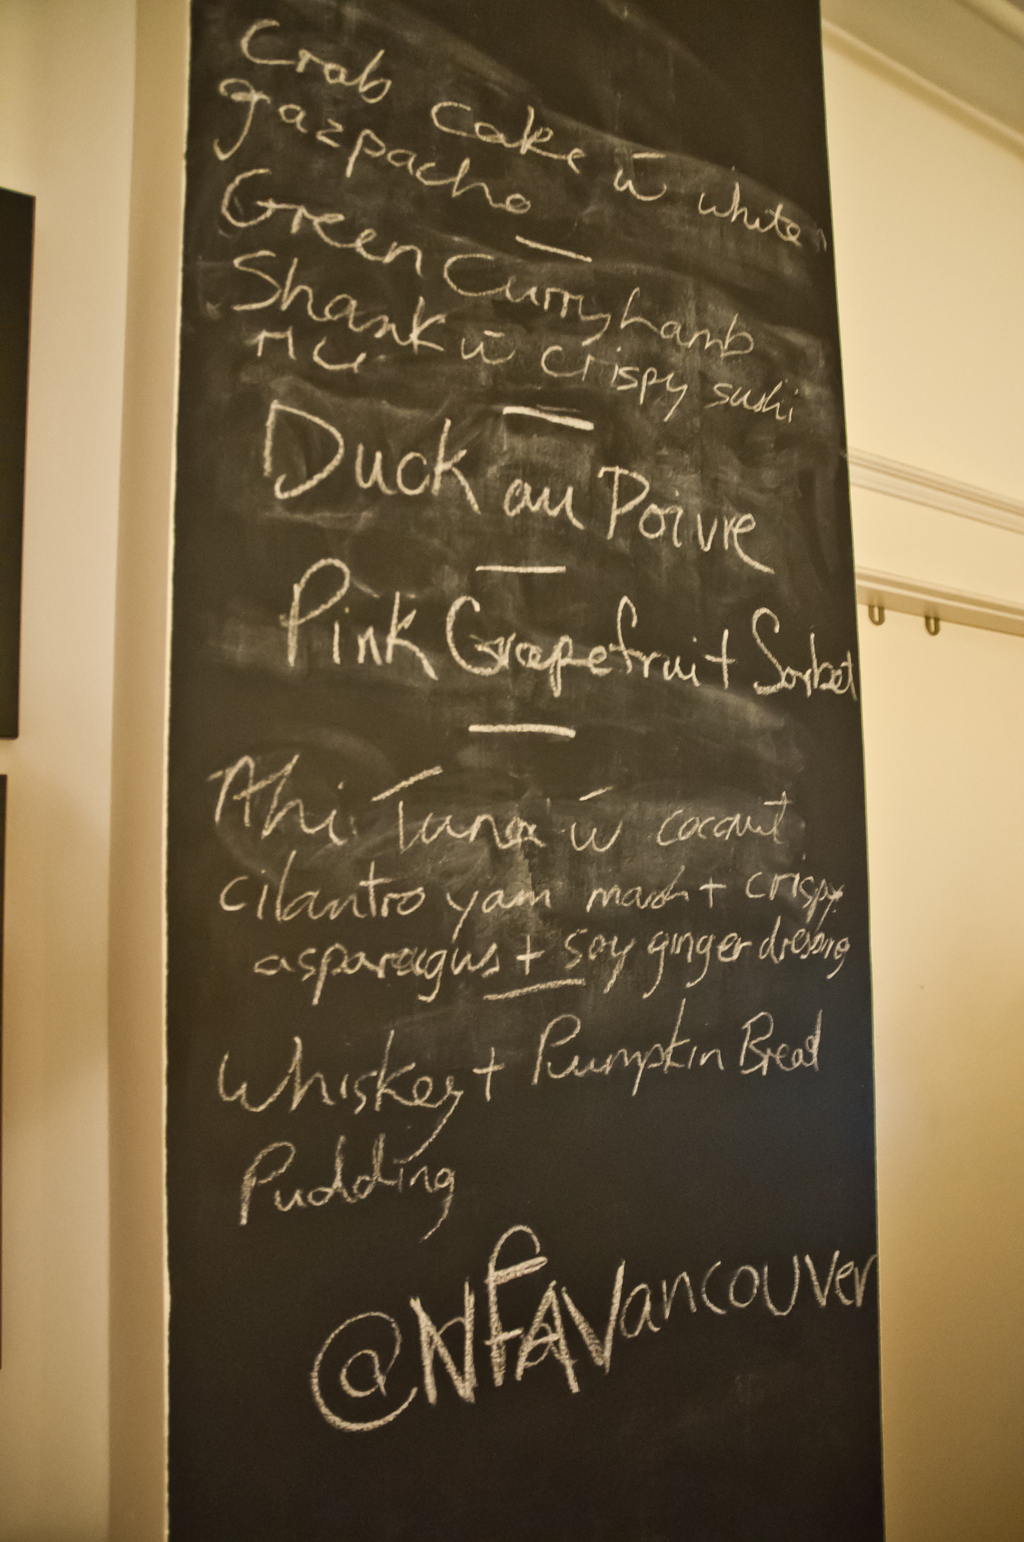 Crab Cake w̄ white
gazpacho
Green Curry Lamb
Shank w̄ crispy sushi
rice
Duck au Poivre
Pink Grapefruit Sorbet
Ahi Tuna w̄ coconut
cilantro yam mash + crispy
asparagus + soy ginger dressing
Whiskey + Pumpkin Bread
Pudding
@NFAVancouver